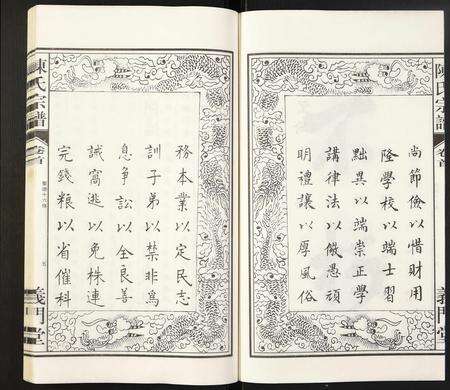 陳氏宗譜
卷首
義門堂
尚節儉以惜財用
隆學校以端士習
黜異以端崇正學
講律法以儆愚頑
明禮讓以厚風俗
務本業以定民志
訓子弟以禁非為
息爭訟以全良善
誡窩逃以免株連
完錢糧以省催科
陳氏宗譜
卷首
五
義門堂